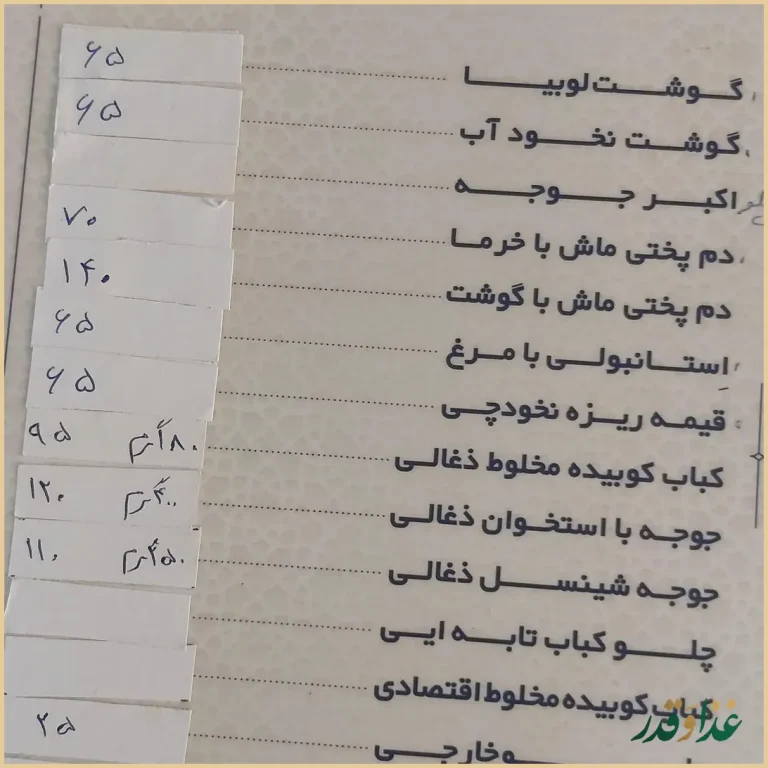 گوشت لوبیا ۶۵
گوشت نخود آب ۶۵
اکبر جوجه
دم پختی ماش با خرما ۷۰
دم پختی ماش با گوشت ۱۴۰
استانبولی با مرغ ۶۵
قیمه ریزه نخودچی ۶۵
کباب کوبیده مخلوط ذغالی ۱۸۰ گرم ۹۵
جوجه با استخوان ذغالی ۴۰۰ گرم ۱۲۰
جوجه شینسل ذغالی ۲۵۰ گرم ۱۱۰
چلو کباب تابه ایی
کباب کوبیده مخلوط اقتصادی
خارجی ۲۵
غذا و قدر